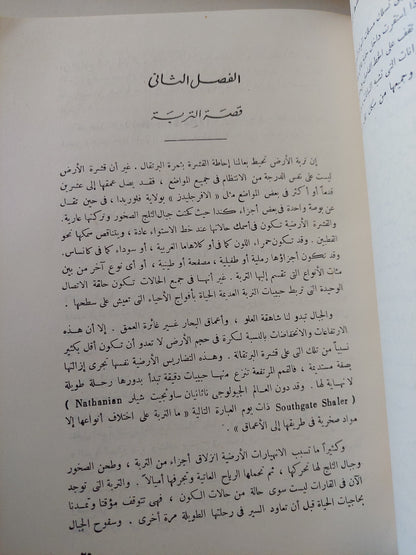 الفصل الثانى
قصة التربة
إن تربة الأرض تحيط بعالمنا إحاطة القشرة بثمرة البرتقال . غير أن قشرة الأرض
ليست على نفس الدرجة من الانتظام فى جميع المواضع ، فقد يصل عمقها إلى عشرين
قدماً أو أكثر فى بعض المواضع مثل « الافرجليدز » بولاية فلوريدا ، فى حين تقل
عن بوصة واحدة فى بعض أجزاء كندا حيث كنست جبال الثلج الصخور وتركتها عارية.
والقشرة الأرضية تكون فى أسمك حالاتها عند خط الاستواء عادة ، ويتناقص سمكها نحو
القطبين . وقد تكون حمراء اللون كما فى أوكلاهاما الغربية ، أو سوداء كما فى كانساس.
وقد تكون أجزاؤها رملية أو طفلية ، مصفحة أو طينية ، أو أى نوع آخر من بين
مئات الأنواع التى تنقسم إليها التربة . غير أنها فى جميع الحالات تكون حلقة الاتصال
الوحيدة التى تربط حبيبات التربة العديمة الحياة بأفواج الأحياء التى تعيش على سطحها .
والجبال تبدو لنا شاهقة العلو ، وأعماق البحار تبدو غائرة العمق . إلا أن هذه
الارتفاعات والانخفاضات بالنسبة لكرة فى حجم الأرض لا تعدو أن تكون أقل بكثير
نسبياً من تلك التى على قشرة البرتقالة . وهذه التضاريس الأرضية نفسها تجرى إزالتها
بصفة مستديمة ، فالقمم المرتفعة تنزع منها حبيبات دقيقة تبدأ بدورها رحلة طويلة
لا نهاية لها . وقد دون العالم الجيولوجى ناثانيان ساوثجيت شيلر ( Nathanian
Southgate Shaler ) ذات يوم العبارة التالية « ما التربة على اختلاف أنواعها إلا
مواد صخرية فى طريقها إلى الأعماق » .
وكثيراً ما تسبب الانهيارات الأرضية انزلاق أجزاء من التربة ، وطحن الصخور
وجبال الثلج لها تحركها ، ثم تحملها الرياح العاتية وتجرفها أميالا . والتربة التى توجد
الآن فى القارات ليست سوى حالة من حالات السكون ، فهى تتوقف مؤقتا وتمدنا
بحاجيات الحياة قبل أن تعاود السير فى رحلتها الطويلة مرة أخرى . وسفوح الجبال